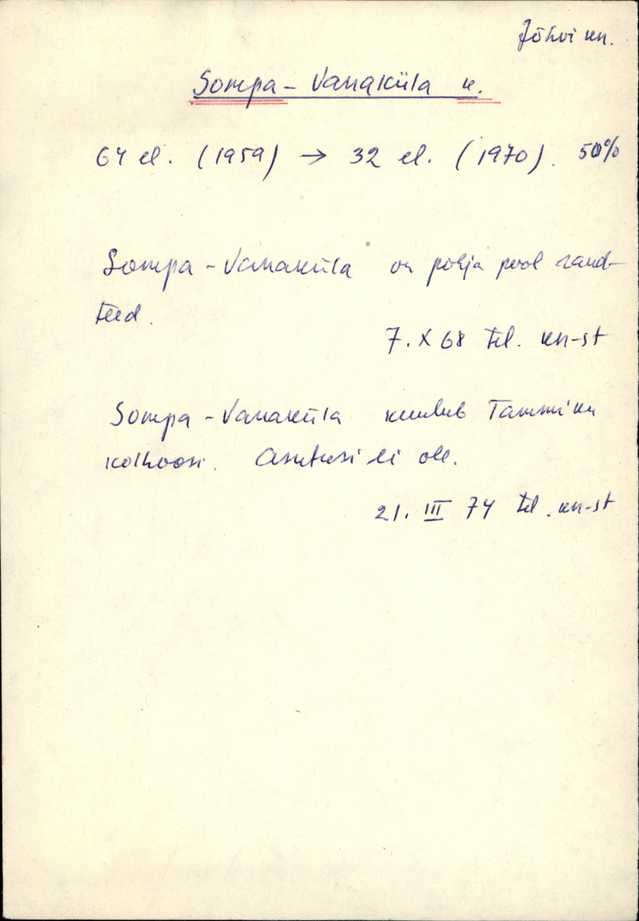 Jõhvi kn.
Sompa-Vanaküla k.
64 el. (1959) → 32 el. (1970). 50%
Sompa-Vanaküla on põhja pool raud-
teed.
7. X 68 tel. kn-st
Sompa-Vanaküla kuulub Tammiku
kolhoosi. Asutusi ei ole.
21. III 74 tel. kn-st